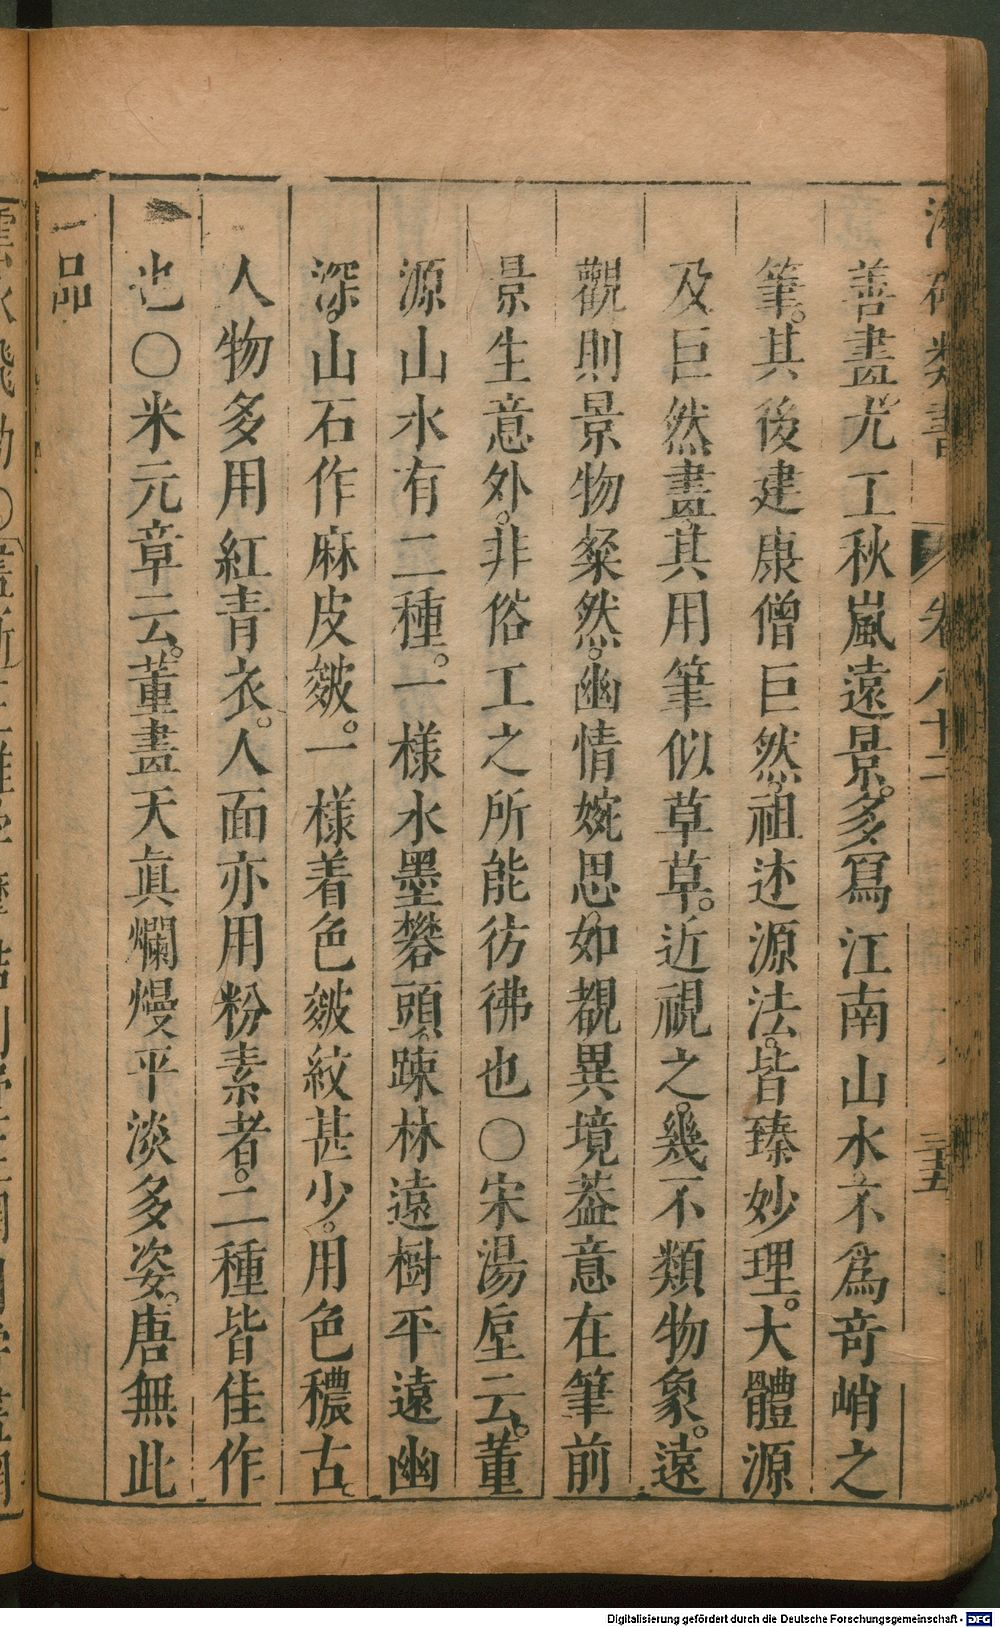 潛確類書 卷八十二 三五
善畫尤工秋嵐遠景。多寫江南山水不爲竒峭之
筆。其後建康僧巨然。祖述源法。皆臻妙理。大體源
及巨然畫。其用筆似草草。近視之。幾不類物象。遠
觀則景物粲然。幽情婉思。如覩異境葢意在筆前
景生意外。非俗工之所能彷彿也○宋湯垕云。董
源山水有二種。一樣水墨礬頭。踈林遠樹平遠幽
深。山石作麻皮皴。一樣着色皴紋甚少。用色穠古。
人物多用紅青衣。人面亦用粉素者。二種皆佳作
也○米元章云。董畫天眞爛熳平淡多姿。唐無此
一品
Digitalisierung gefördert durch die Deutsche Forschungsgemeinschaft - DFG